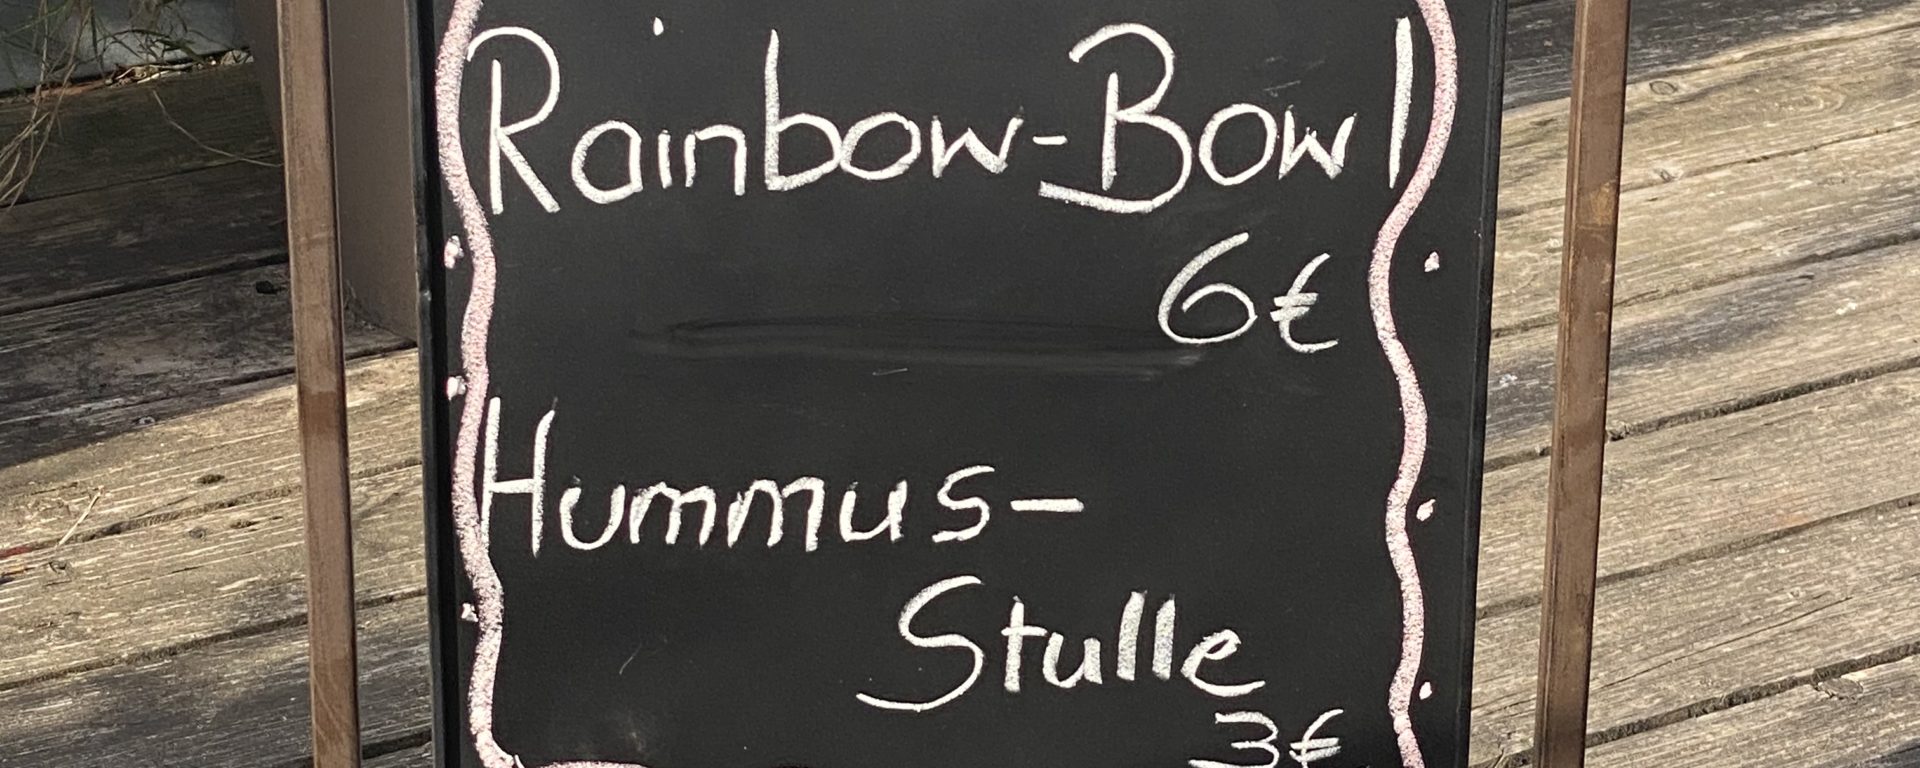 Rainbow-Bowl
6€
Hummus-
Stulle
3€